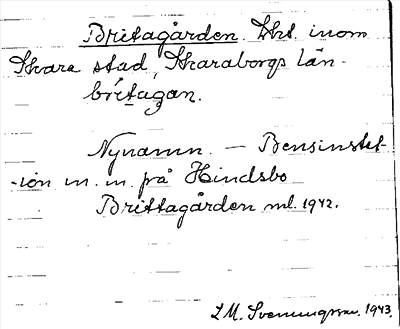 Britagården. Lht. inom
Skara stad, Skaraborgs län.
britagan.
Nynamn. – Bensinstat-
-ion m. m. på Hindsbo
Brittagården ml. 1942.
L M. Svenungsson. 1943.